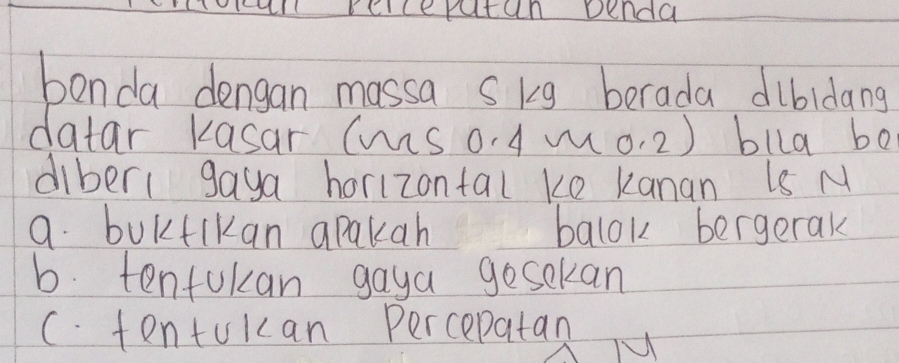 Percepatan benda
benda dengan massa 5 kg berada dibidang
datar kasar (ms 0.4 m 0.2) bila be
diberi gaya horizontal ke kanan 15 N
a. buktikan apakah balok bergerak
b. tentukan gaya gesekan
c. tentukan Percepatan
N